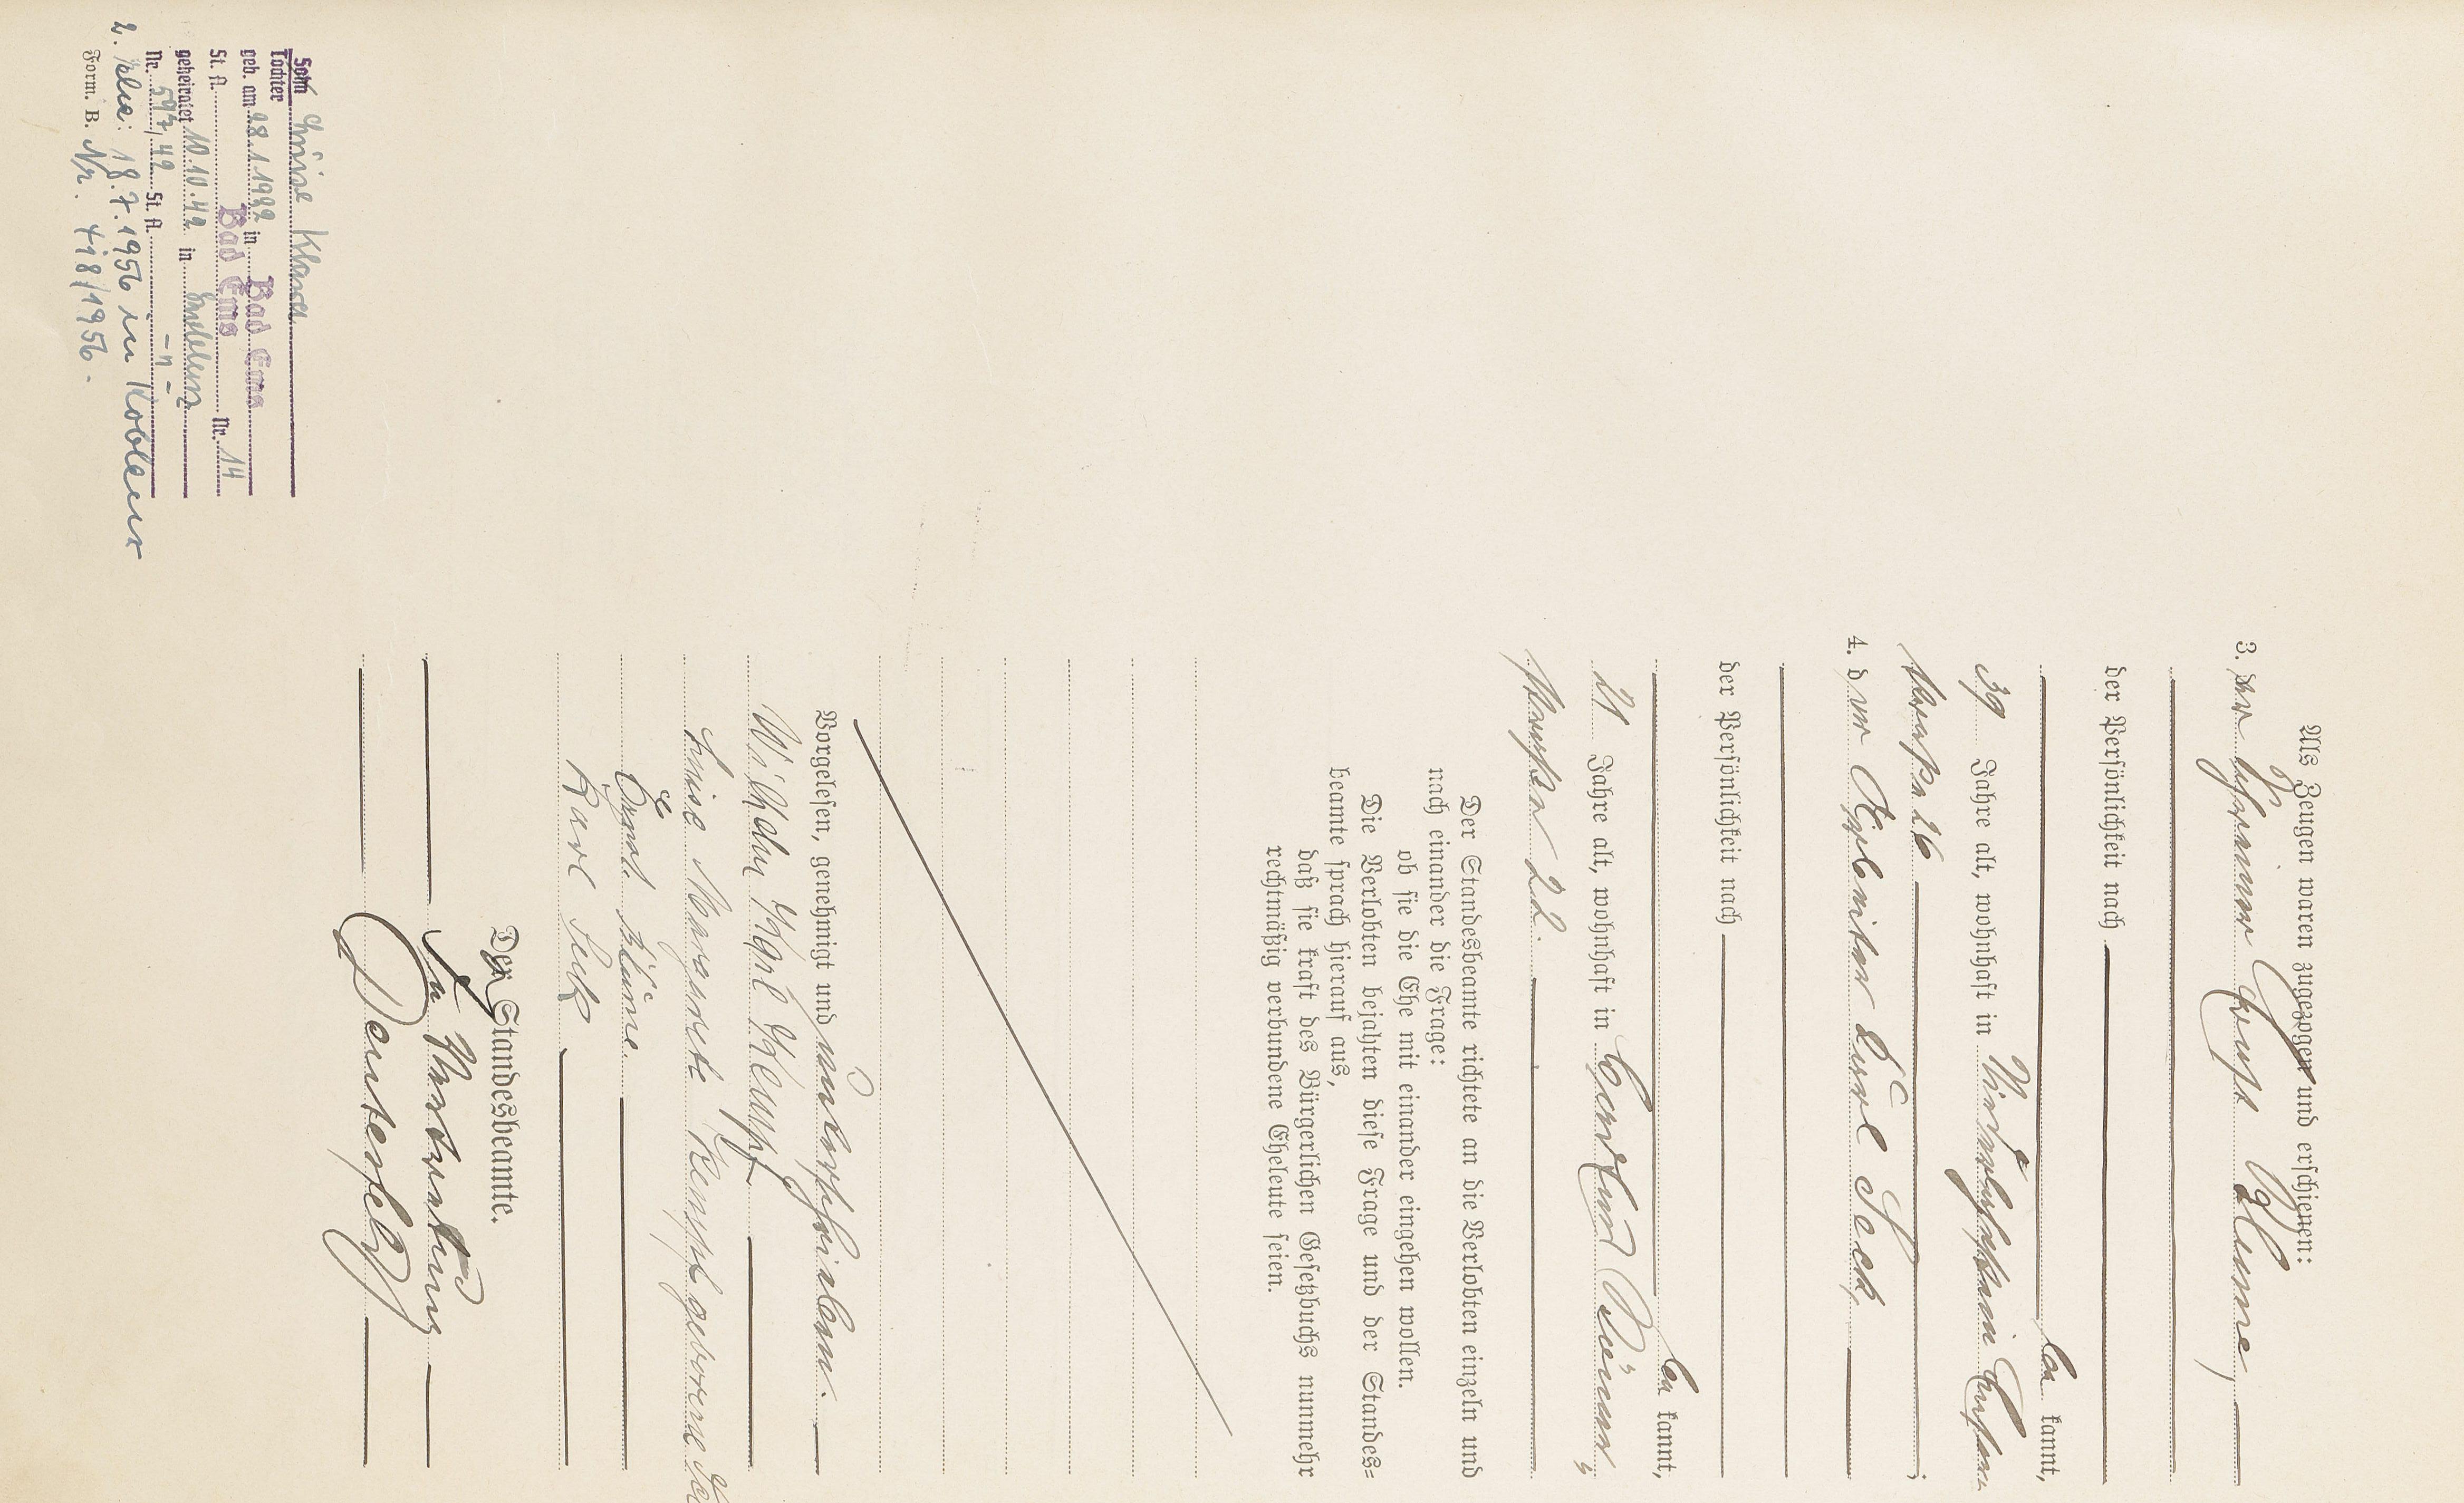 Als Zeugen waren zugezogen und erschienen:
3. der Ernst Blume,
der Persönlichkeit nach
be kannt,
39 Jahre alt, wohnhaft in
26 ;
4. d er Karl Seck,
der Persönlichkeit nach
be kannt,
21 Jahre alt, wohnhaft in
22.
Der Standesbeamte richtete an die Verlobten einzeln und
nach einander die Frage:
ob sie die Ehe mit einander eingehen wollen.
Die Verlobten bejahten diese Frage und der Standes=
beamte sprach hierauf aus,
daß sie kraft des Bürgerlichen Gesetzbuchs nunmehr
rechtmäßig verbundene Eheleute seien.
Vorgelesen, genehmigt und unterschrieben.
Wilhelm Karl Kempf
Luise Margarete Kempf geborene
Ernst Blume.
Karl Seck
Der Standesbeamte.
In Vertretung
Sohn Luise Klara
Tochter
geb. am 28.1.1922 in Bad Ems
St. A. Bad Ems Nr. 14
geheiratet 10.10.42 in Koblenz
Nr. 597/42 St. A. - " -
2. Ehe: 18.7.1956 in Koblenz
Form. B. Nr. 418/1956.